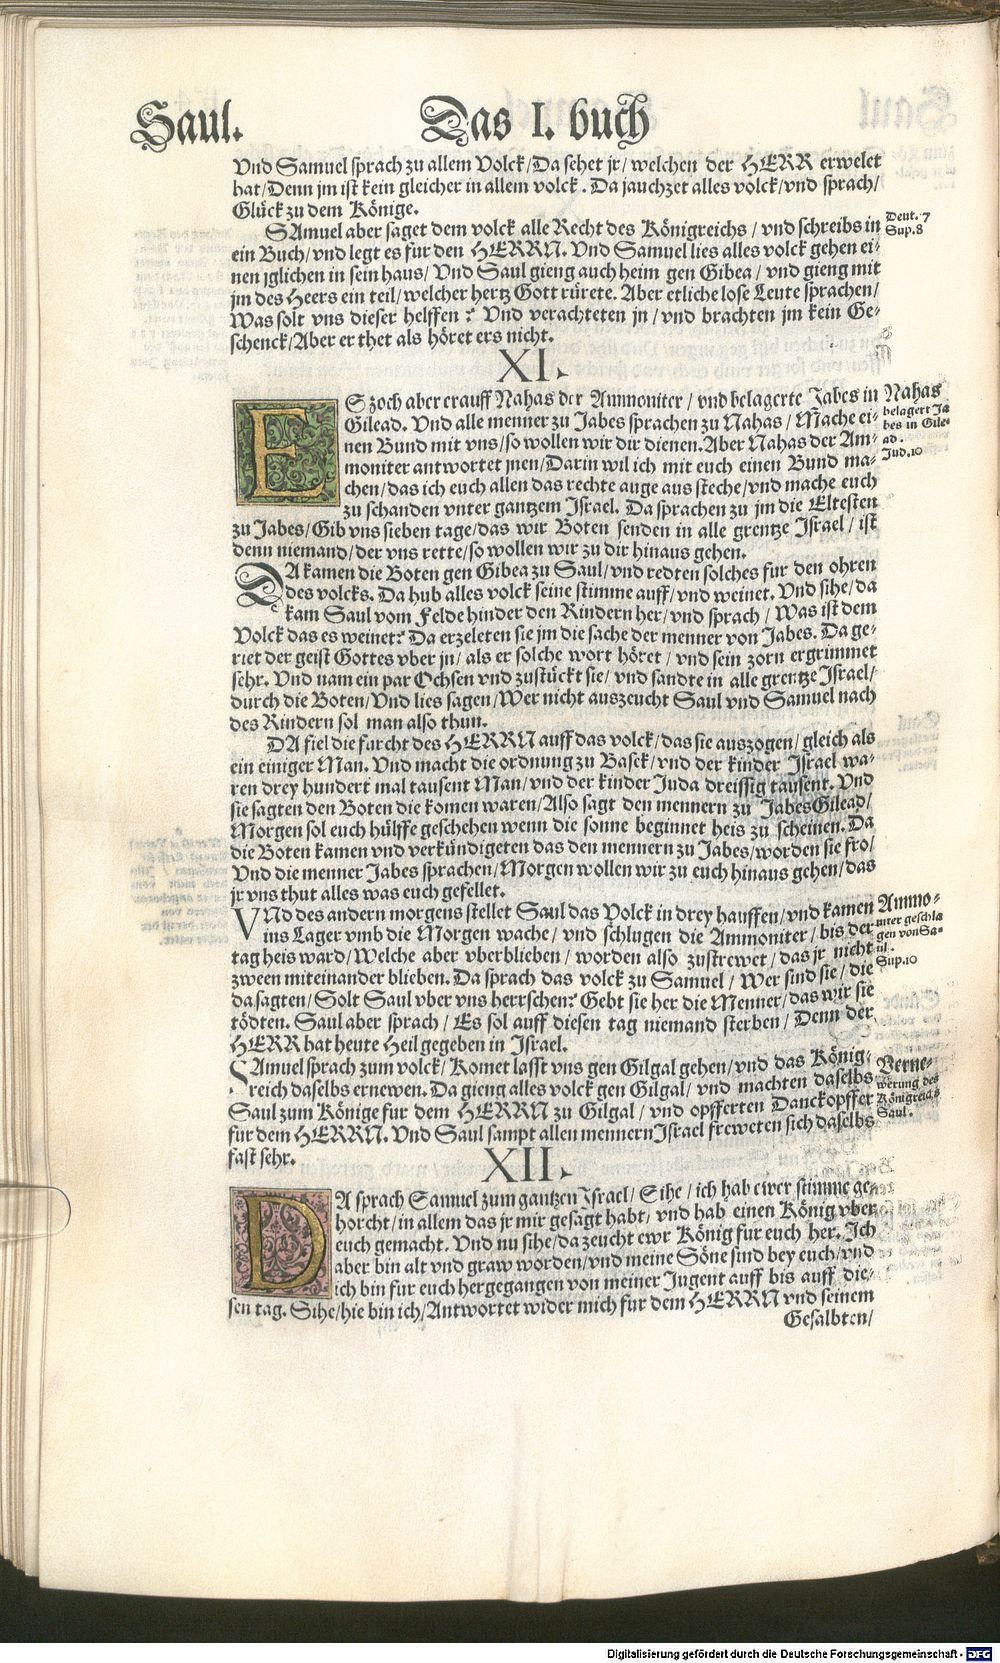 Saul.
Das I. buch
Vnd Samuel sprach zu allem Volck/ Da sehet jr/ welchen der HERR erwelet
hat/ Denn jm ist kein gleicher in allem volck. Da jauchzet alles volck/ vnd sprach/
Glück zu dem Könige.
SAmuel aber saget dem volck alle Recht des Königreichs/ vnd schreibs in
ein Buch/ vnd legt es fur den HERRN. Vnd Samuel lies alles volck gehen ei-
nen jglichen in sein haus/ Vnd Saul gieng auch heim gen Gibea/ vnd gieng mit
jm des Heers ein teil/ welcher hertz Gott rürete. Aber etliche lose Leute sprachen/
Was solt vns dieser helffen? Vnd verachteten jn/ vnd brachten jm kein Ge-
schenck/ Aber er thet als höret ers nicht.
Deut. 7
Sup. 8
XI.
ES zoch aber erauff Nahas der Ammoniter/ vnd belagerte Jabes in
Gilead. Vnd alle menner zu Jabes sprachen zu Nahas/ Mache ei-
nen Bund mit vns/ so wollen wir dir dienen. Aber Nahas der Am-
moniter antwortet jnen/ Darin wil ich mit euch einen Bund ma-
chen/ das ich euch allen das rechte auge aus steche/ vnd mache euch
zu schanden vnter gantzem Israel. Da sprachen zu jm die Eltesten
zu Jabes/ Gib vns sieben tage/ das wir Boten senden in alle grentze Israel/ ist
denn niemand/ der vns rette/ so wollen wir zu dir hinaus gehen.
Nahas
belagert Ja
bes in Gile-
ad.
Jud. 10
DA kamen die Boten gen Gibea zu Saul/ vnd redten solches fur den ohren
des volcks. Da hub alles volck seine stimme auff/ vnd weinet. Vnd sihe/ da
kam Saul vom Felde hinder den Rindern her/ vnd sprach/ Was ist dem
Volck das es weinet? Da erzeleten sie jm die sache der menner von Jabes. Da ge-
riet der geist Gottes vber jn/ als er solche wort höret/ vnd sein zorn ergrimmet
sehr. Vnd nam ein par Ochsen vnd zustückt sie/ vnd sandte in alle grentze Israel/
durch die Boten/ Vnd lies sagen/ Wer nicht auszeucht Saul vnd Samuel nach
des Rindern sol man also thun.
DA fiel die furcht des HERRN auff das volck/ das sie auszogen/ gleich als
ein einiger Man. Vnd macht die ordnung zu Basek/ vnd der kinder Israel wa-
ren drey hundert mal tausent Man/ vnd der kinder Juda dreissig tausent. Vnd
sie sagten den Boten die komen waren/ Also sagt den mennern zu Jabes Gilead/
Morgen sol euch hülffe geschehen wenn die sonne beginnet heis zu scheinen. Da
die Boten kamen vnd verkündigeten das den mennern zu Jabes/ worden sie fro/
Vnd die menner Jabes sprachen/ Morgen wollen wir zu euch hinaus gehen/ das
jr vns thut alles was euch gefellet.
VNd des andern morgens stellet Saul das Volck in drey hauffen/ vnd kamen
ins Lager vmb die Morgen wache/ vnd schlugen die Ammoniter/ bis der
tag heis ward/ Welche aber vberblieben/ worden also zustrewet/ das jr nicht
zween miteinander blieben. Da sprach das volck zu Samuel/ Wer sind sie/ die
da sagten/ Solt Saul vber vns herrschen? Gebt sie her die Menner/ das wir sie
tödten. Saul aber sprach/ Es sol auff diesen tag niemand sterben/ Denn der
HERR hat heute Heil gegeben in Israel.
Ammo-
niter geschla
gen von Sa-
ul.
Sup. 10
SAmuel sprach zum volck/ Komet lasst vns gen Gilgal gehen/ vnd das König-
reich daselbs ernewen. Da gieng alles volck gen Gilgal/ vnd machten daselbs
Saul zum Könige fur dem HERRN zu Gilgal/ vnd opfferten Danckopffer
fur dem HERRN. Vnd Saul sampt allen mennern Israel freweten sich daselbs
fast sehr.
Verne-
werung des
Königreichs
Saul.
XII.
DA sprach Samuel zum gantzen Israel/ Sihe/ ich hab ewer stimme ge-
horcht/ in allem das jr mir gesagt habt/ vnd hab einen König vber
euch gemacht. Vnd nu sihe/ da zeucht ewr König fur euch her. Ich
aber bin alt vnd graw worden/ vnd meine Söne sind bey euch/ vnd
ich bin fur euch hergegangen von meiner Jugent auff bis auff die-
sen tag. Sihe/ hie bin ich/ Antwortet wider mich fur dem HERRN vnd seinem
Gesalbten/
Digitalisierung gefördert durch die Deutsche Forschungsgemeinschaft - DFG